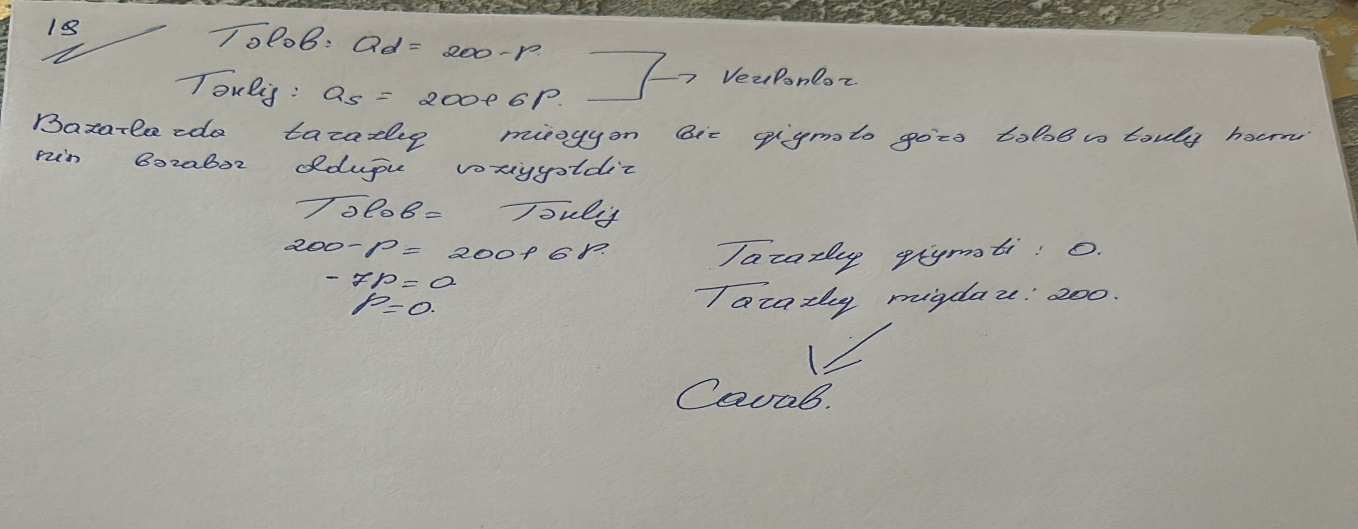 18
Tələb: Qd = 200-P.
Təklif: Qs = 200+6P. → Verilənlər
Bazarlarda tarazlıq müəyyən bir qiymətə görə tələb və təklif həcmi
nin bərabər olduğu vəziyyətdir
Tələb = Təklif
200-P = 200+6P.
-7P=0
P=0.
Tarazlıq qiyməti: 0.
Tarazlıq miqdarı: 200.
Cavab.